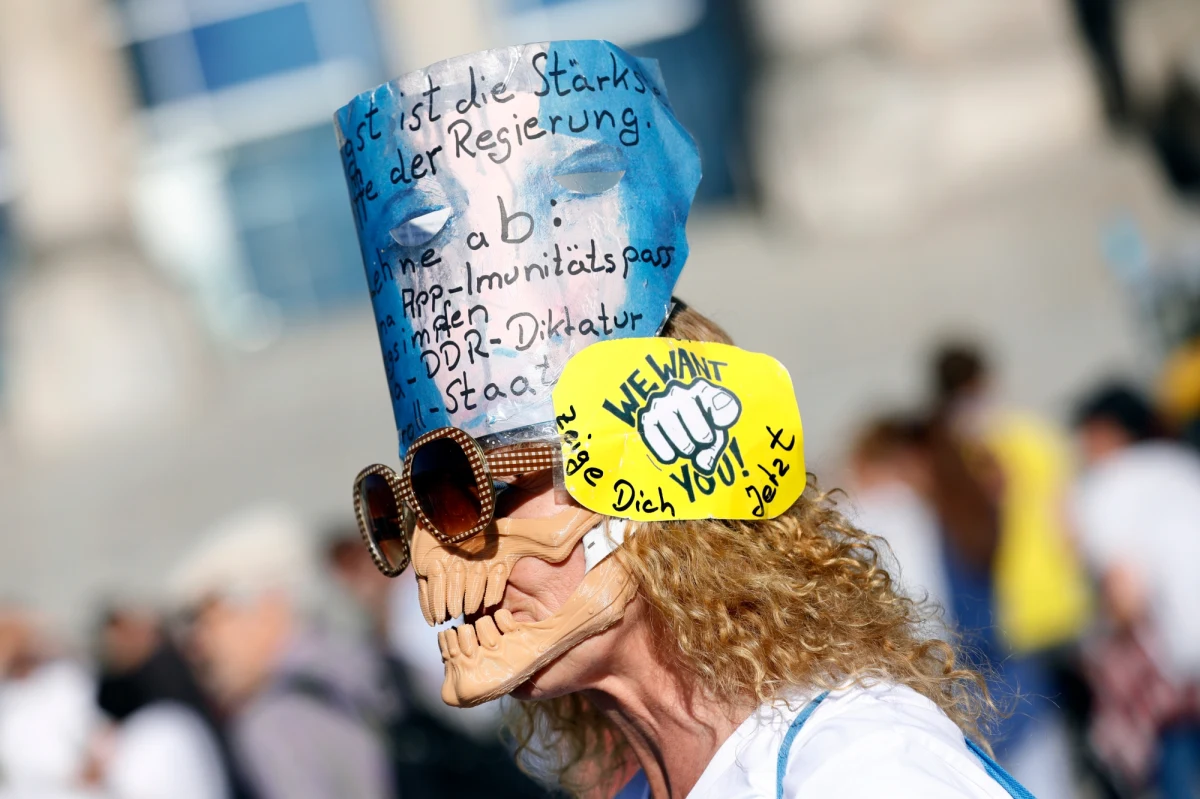 ist die Stärks
der Regierung.
ab:
App-Imunitätspass
DDR-Diktatur
WE WANT
YOU!
zeige Dich Jetzt